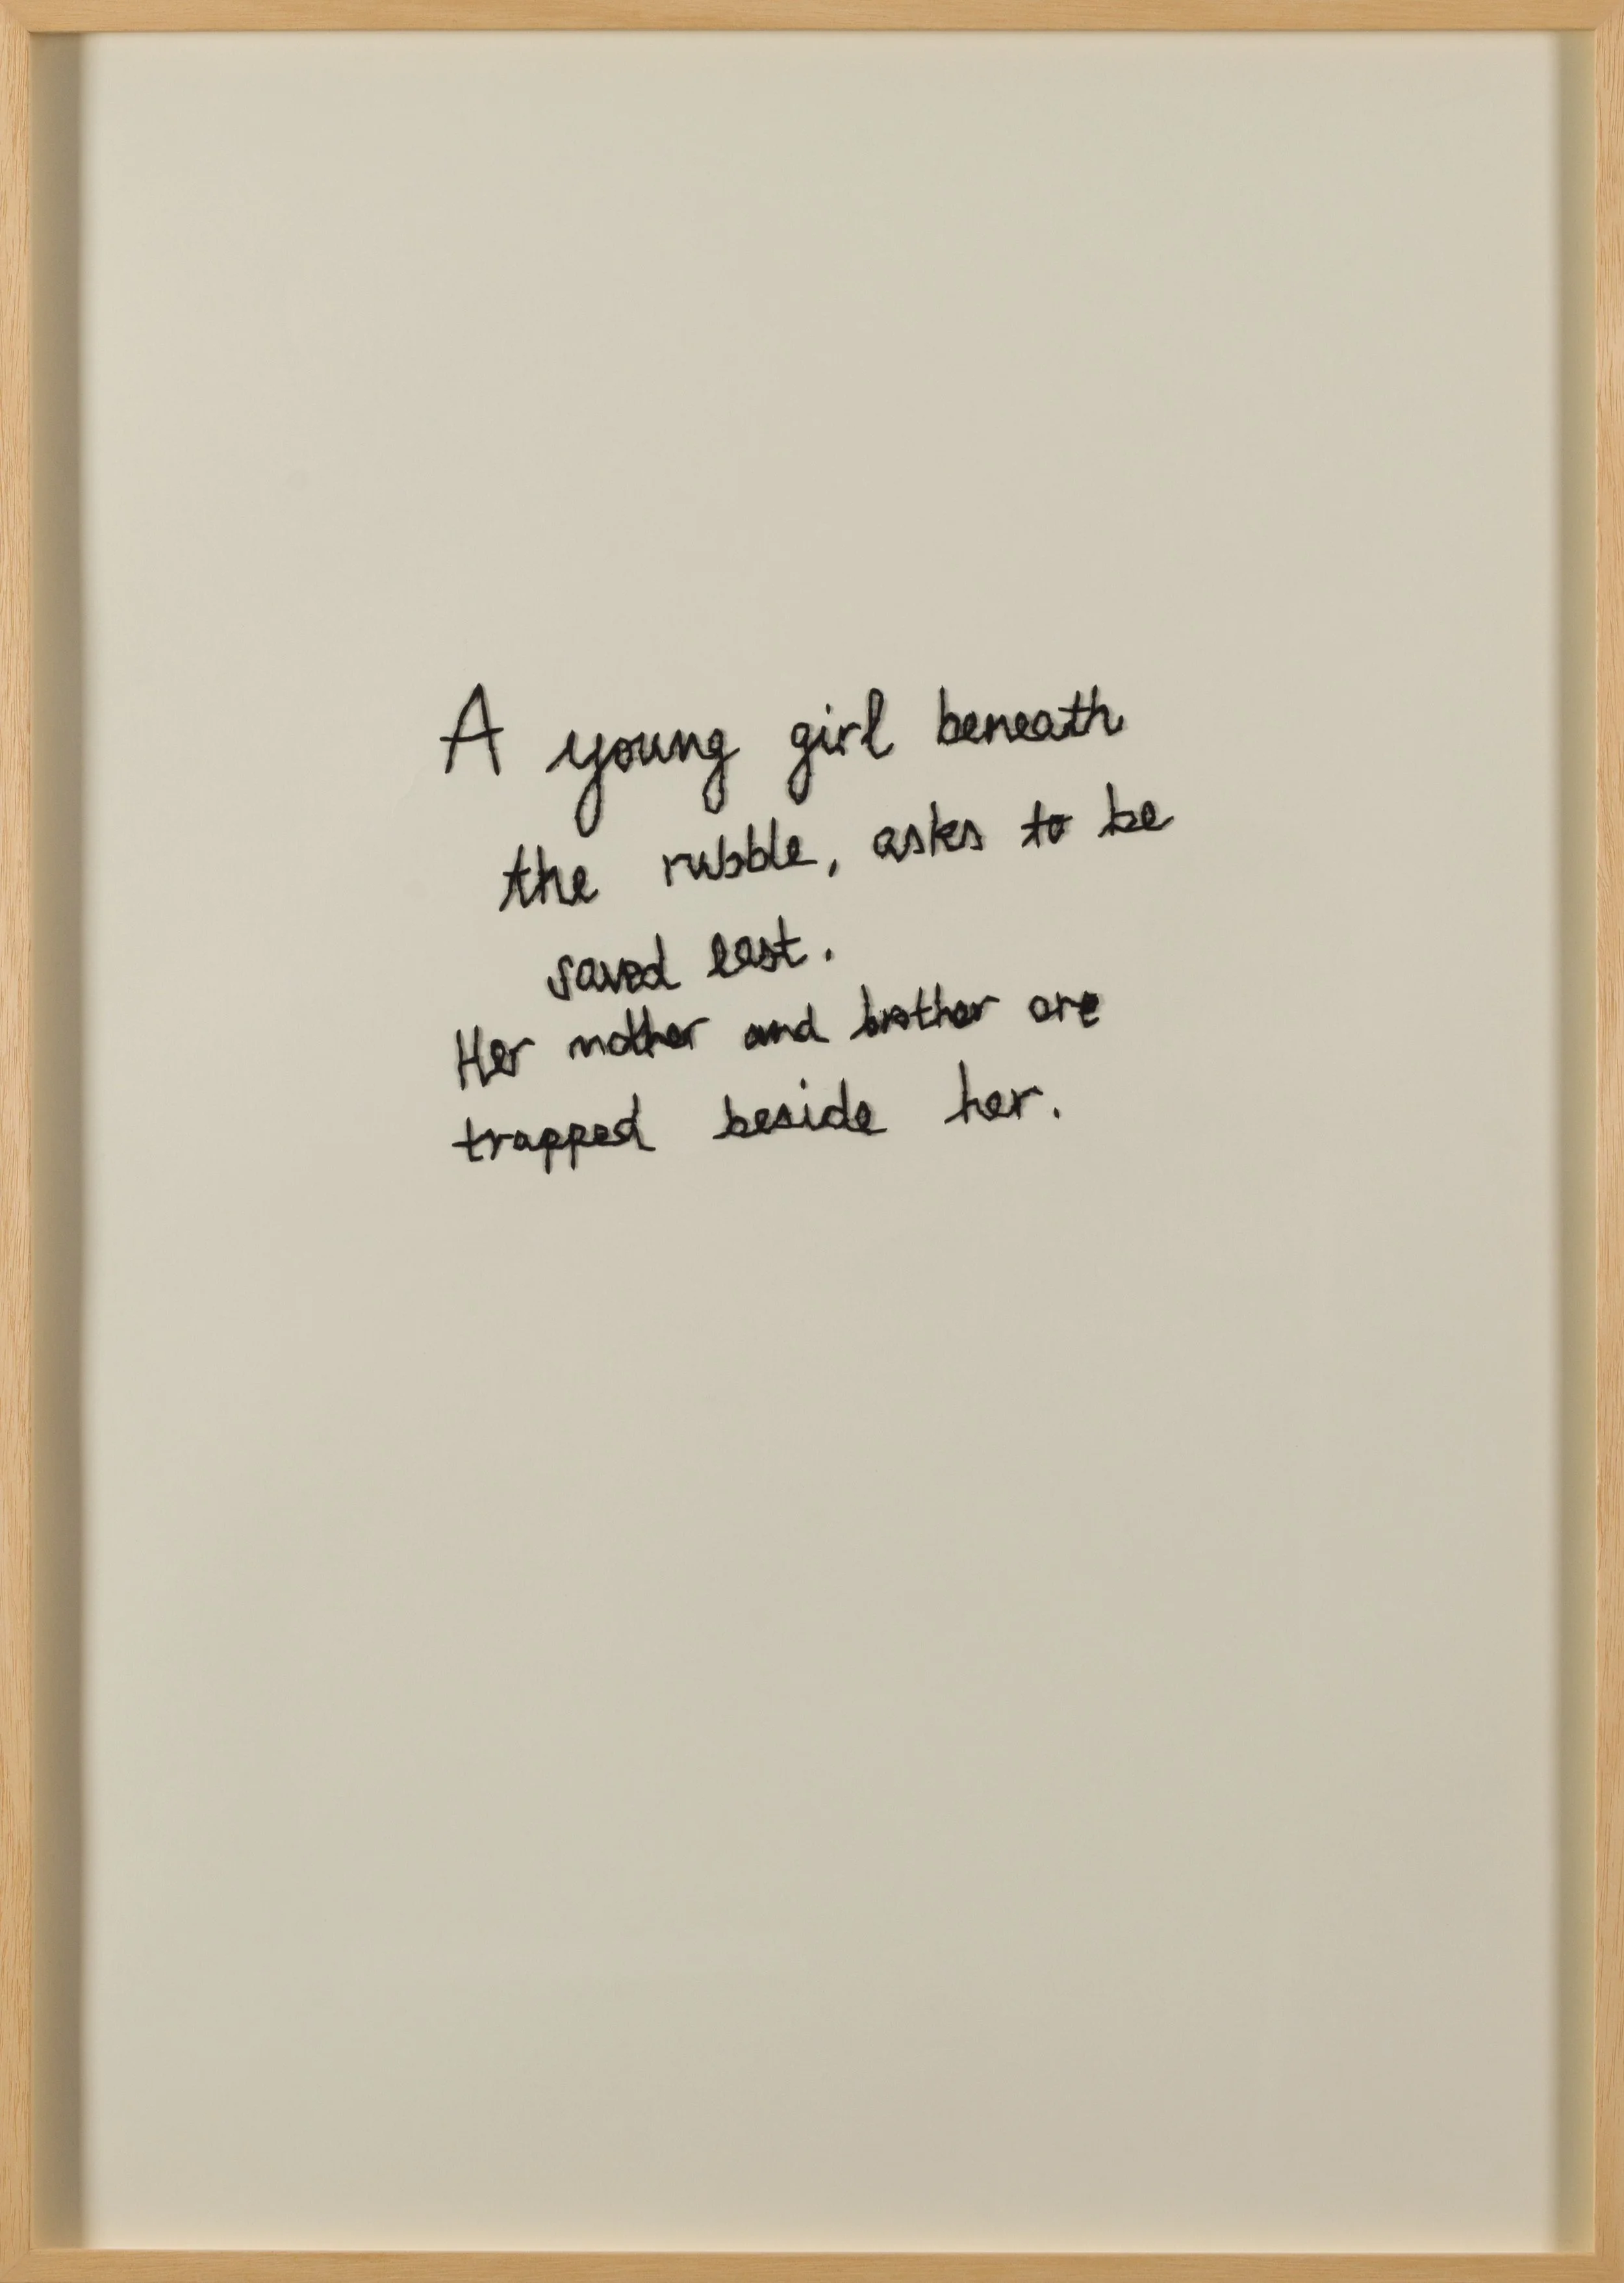 A young girl beneath
the rubble, asks to be
saved last.
Her mother and brother are
trapped beside her.